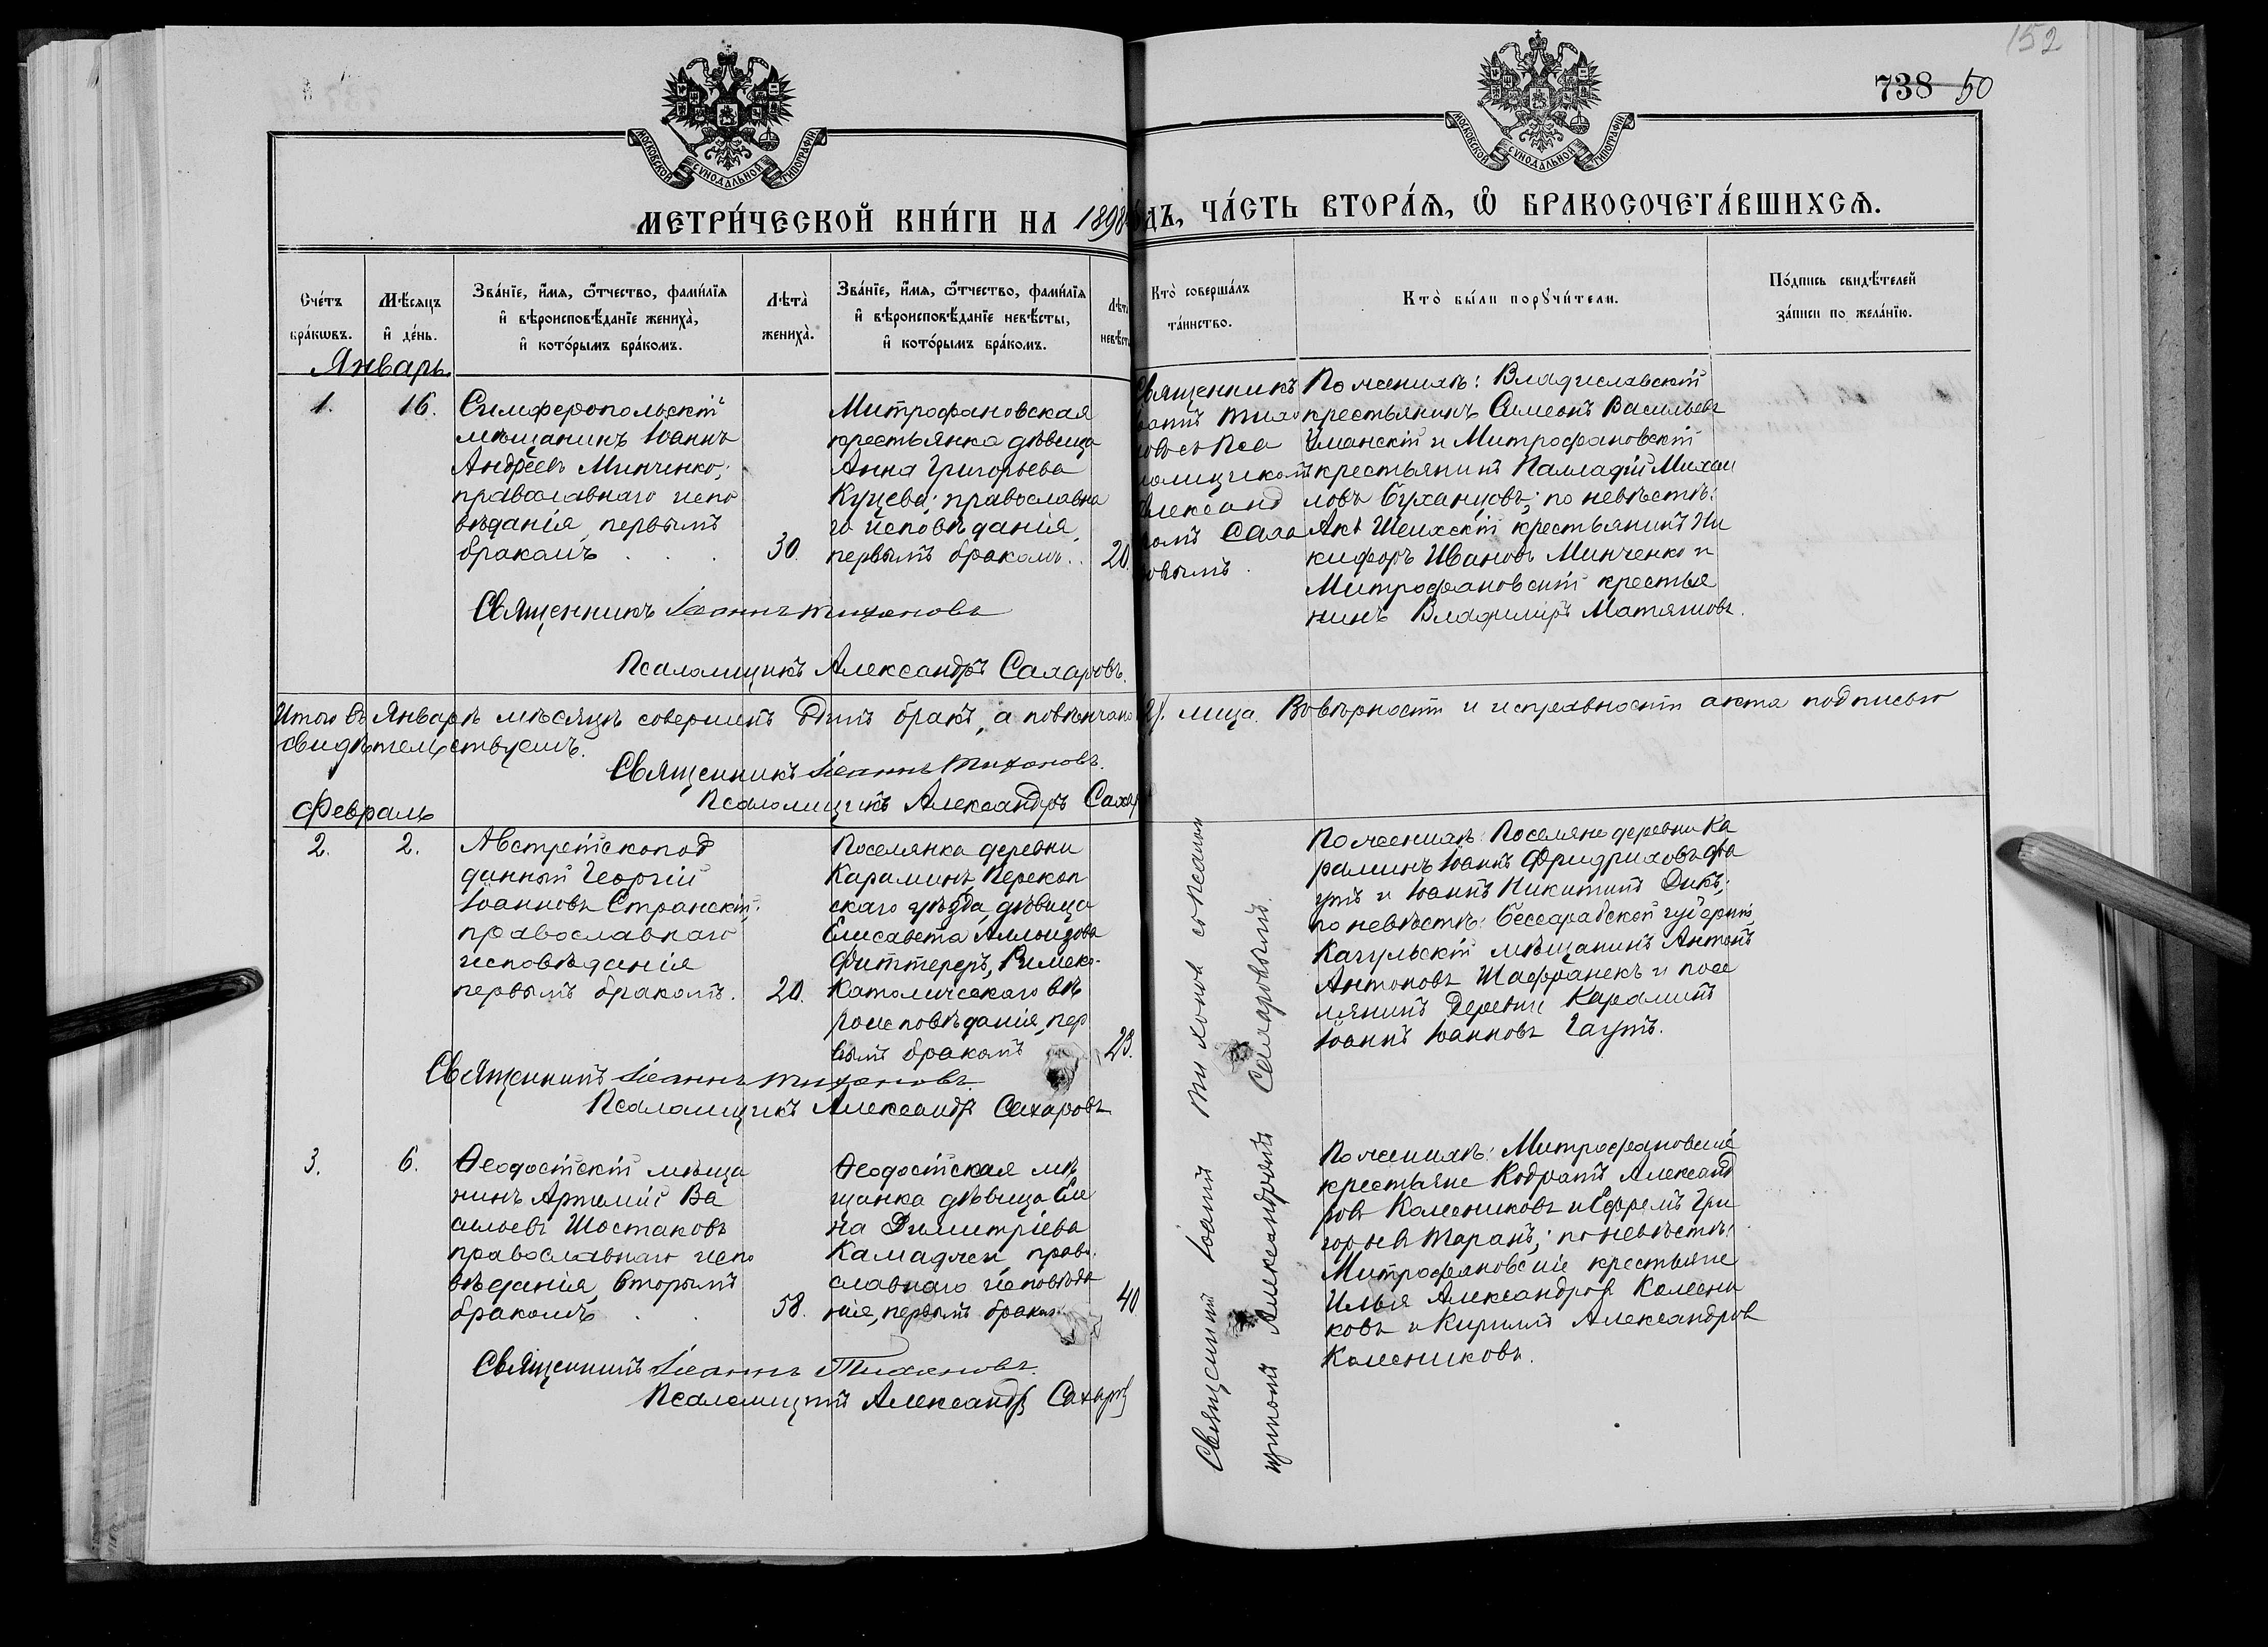 152
738 50
МОСКОВСКОЙ СѴНОДАЛЬНОЙ ТИПОГРАФІИ
МОСКОВСКОЙ СѴНОДАЛЬНОЙ ТИПОГРАФІИ
МЕТРИ́ЧЕСКОЙ КНИ́ГИ НА 1898
ДЪ, ЧА́СТЬ ВТОРА́Ѧ, Ѽ БРАКОСОЧЕТА́ВШИХСѦ.
Сче́тъ бра́кѡвъ.
Мѣ́сѧцъ и҆ де́нь.
Зва́нїе, и҆́мѧ, ѻ҆́тчество, фами́лїѧ
и҆ вѣроисповѣ́данїе жениха̀,
и҆ кото́рымъ бра́комъ.
Лѣта̀ жениха̀.
Зва́нїе, и҆́мѧ, ѻ҆́тчество, фами́лїѧ
и҆ вѣроисповѣ́данїе невѣ́сты,
и҆ кото́рымъ бра́комъ.
Лѣта невѣст
Кто̀ соверша́лъ та́инство.
Кто̀ бы́ли порꙋчи́тели.
По́дпись свидѣ́телей за́писи по жела́нїю.
Январь.
1.
16.
Симферопольскій
мѣщанинъ Іоаннъ
Андреевъ Минченко;
православнаго испо
вѣданія, первымъ
бракомъ . . .
30.
Митрофановская
крестьянка дѣвица
Анна Григорьева
Куцева; православна
го исповѣданія,
первымъ бракомъ. .
20.
Священникъ
Іоаннъ Тихо
новъ съ Пса
ломщикомъ
Александ
ромъ Саха
ровымъ.
По женихѣ: Владиславскій
крестьянинъ Симеонъ Васильевъ
Уманскій и Митрофановскій
крестьянинъ Палладій Михаи
ловъ Буханцовъ; по невѣстѣ:
Акъ Шеихскій крестьянинъ Ни
кифоръ Ивановъ Минченко и
Митрофановскій крестья
нинъ Владимиръ Матяшовъ.
Священникъ Іоаннъ Тихоновъ
Псаломщикъ Александръ Сахаровъ.
Итого въ Январѣ мѣсяцѣ совершенъ Одинъ бракъ, а повѣнчано 2. лица. Въ вѣрности и исправности акта подписью
свидѣтельствуемъ.
Священникъ Іоаннъ Тихоновъ.
Псаломщикъ Александръ Сахар
Февраль
2.
2.
Австрійскопод
данный Георгій
Іоанновъ Странскій.
православнаго
исповѣданія
первымъ бракомъ.
20.
Поселянка деревни
Караминъ, Перекоп
скаго уѣзда, дѣвица
Елисавета Алоизова
Фиттереръ, Римско-
Католическаго вѣ
роисповѣданія, пер
вымъ бракомъ
23.
Священникъ Іоаннъ Тихоновъ съ Псалом
щикомъ Александромъ Сахаровымъ.
По женихѣ: Поселяне деревни Ка
раминъ Іоаннъ Фридриховъ Га
утъ и Іоаннъ Никитинъ Дикъ;
по невѣстѣ: Бессарабской губерніи,
Кагульскій мѣщанинъ Антонъ
Антоновъ Шафранекъ и посе
лянинъ деревни Караминъ
Іоаннъ Іоанновъ Гаутъ.
Священникъ Іоаннъ Тихоновъ.
Псаломщикъ Александръ Сахаровъ
3.
6.
Ѳеодосійскій мѣща
нинъ Артемій Ва
сильевъ Шостаковъ
православнаго испо
вѣданія, вторымъ
бракомъ . .
58.
Ѳеодосійская мѣ
щанка дѣвица Еле
на Димитріева
Камаджи, право
славнаго исповѣда
нія, первымъ бракомъ
40
По женихѣ: Митрофановскіе
крестьяне Кодратъ Александ
ровъ Колесниковъ и Ефремъ Гри
горьевъ Таранъ; по невѣстѣ:
Митрофановскіе крестьяне
Илья Александровъ Колесни
ковъ и Кириллъ Александровъ
Колесниковъ.
Священникъ Іоаннъ Тихоновъ.
Псаломщикъ Александръ Сахаровъ